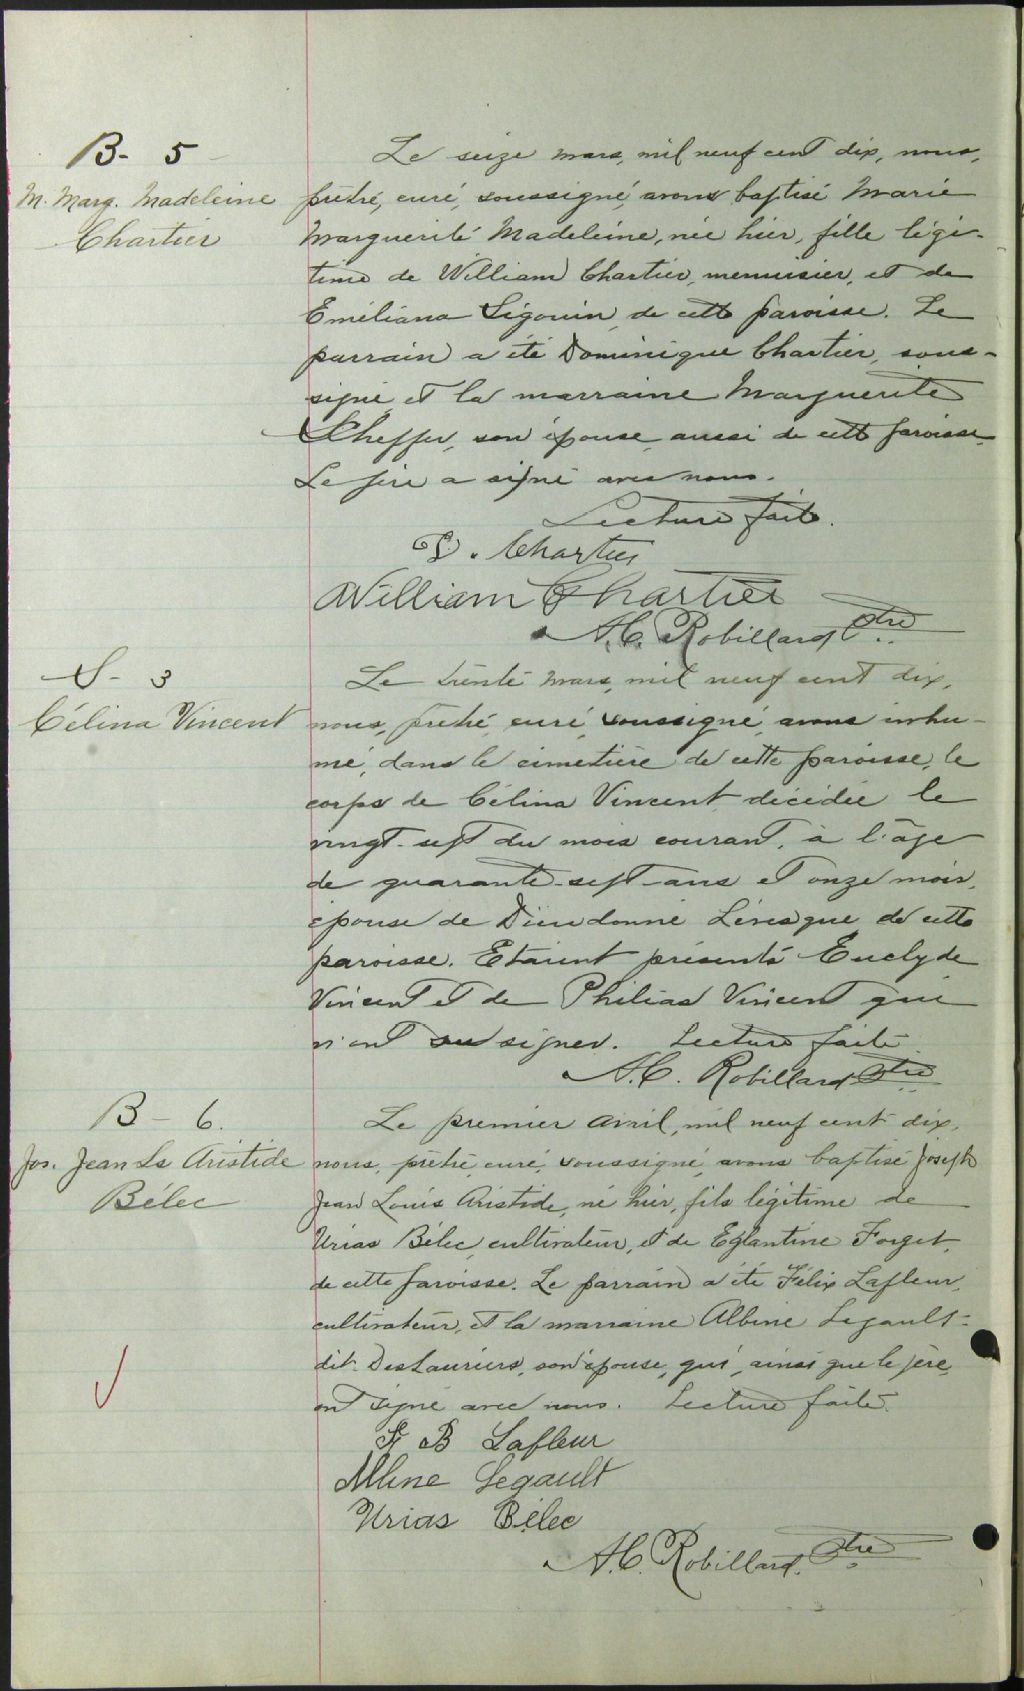 B- 5
M. Marg. Madeleine
Chartier
Le seize mars, mil neuf cent dix, nous,
prêtre, curé, soussigné, avons baptisé Marie
Marguerite Madeleine, née hier, fille légi-
time de William Chartier, menuisier, et de
Eméliana Sigouin, de cette paroisse. Le
parrain a été Dominique Chartier, sous-
signé et la marraine Marguerite
Scheffer, son épouse, aussi de cette paroisse.
Le père a signé avec nous.
Lecture faite.
D. Chartier
William Chartier
A.C. Robillard Ptre
S- 3
Célina Vincent
Le trente mars, mil neuf cent dix,
nous, prêtre, curé, soussigné, avons inhu-
mé, dans le cimetière de cette paroisse, le
corps de Célina Vincent, décédée le
vingt-sept du mois courant, à l'âge
de quarante-sept-ans et onze mois,
épouse de Dieudonné Lévesque de cette
paroisse. Etaient présents Euclyde
Vincent et de Philias Vincent qui
n'ont su signer. Lecture faite.
A.C. Robillard Ptre
B- 6.
Jos. Jean Ls Aristide
Bélec
Le premier avril, mil neuf cent dix,
nous, prêtre, curé, soussigné, avons baptisé Joseph
Jean Louis Aristide, né hier, fils légitime de
Urias Bélec, cultivateur, et de Eglantine Forget,
de cette paroisse. Le parrain a été Félix Lafleur,
cultivateur, et la marraine Albine Legault-
dit-DesLauriers, son épouse, qui, ainsi que le père,
ont signé avec nous. Lecture faite.
B Lafleur
Albine Legault
Urias Bélec
A.C. Robillard, Ptre